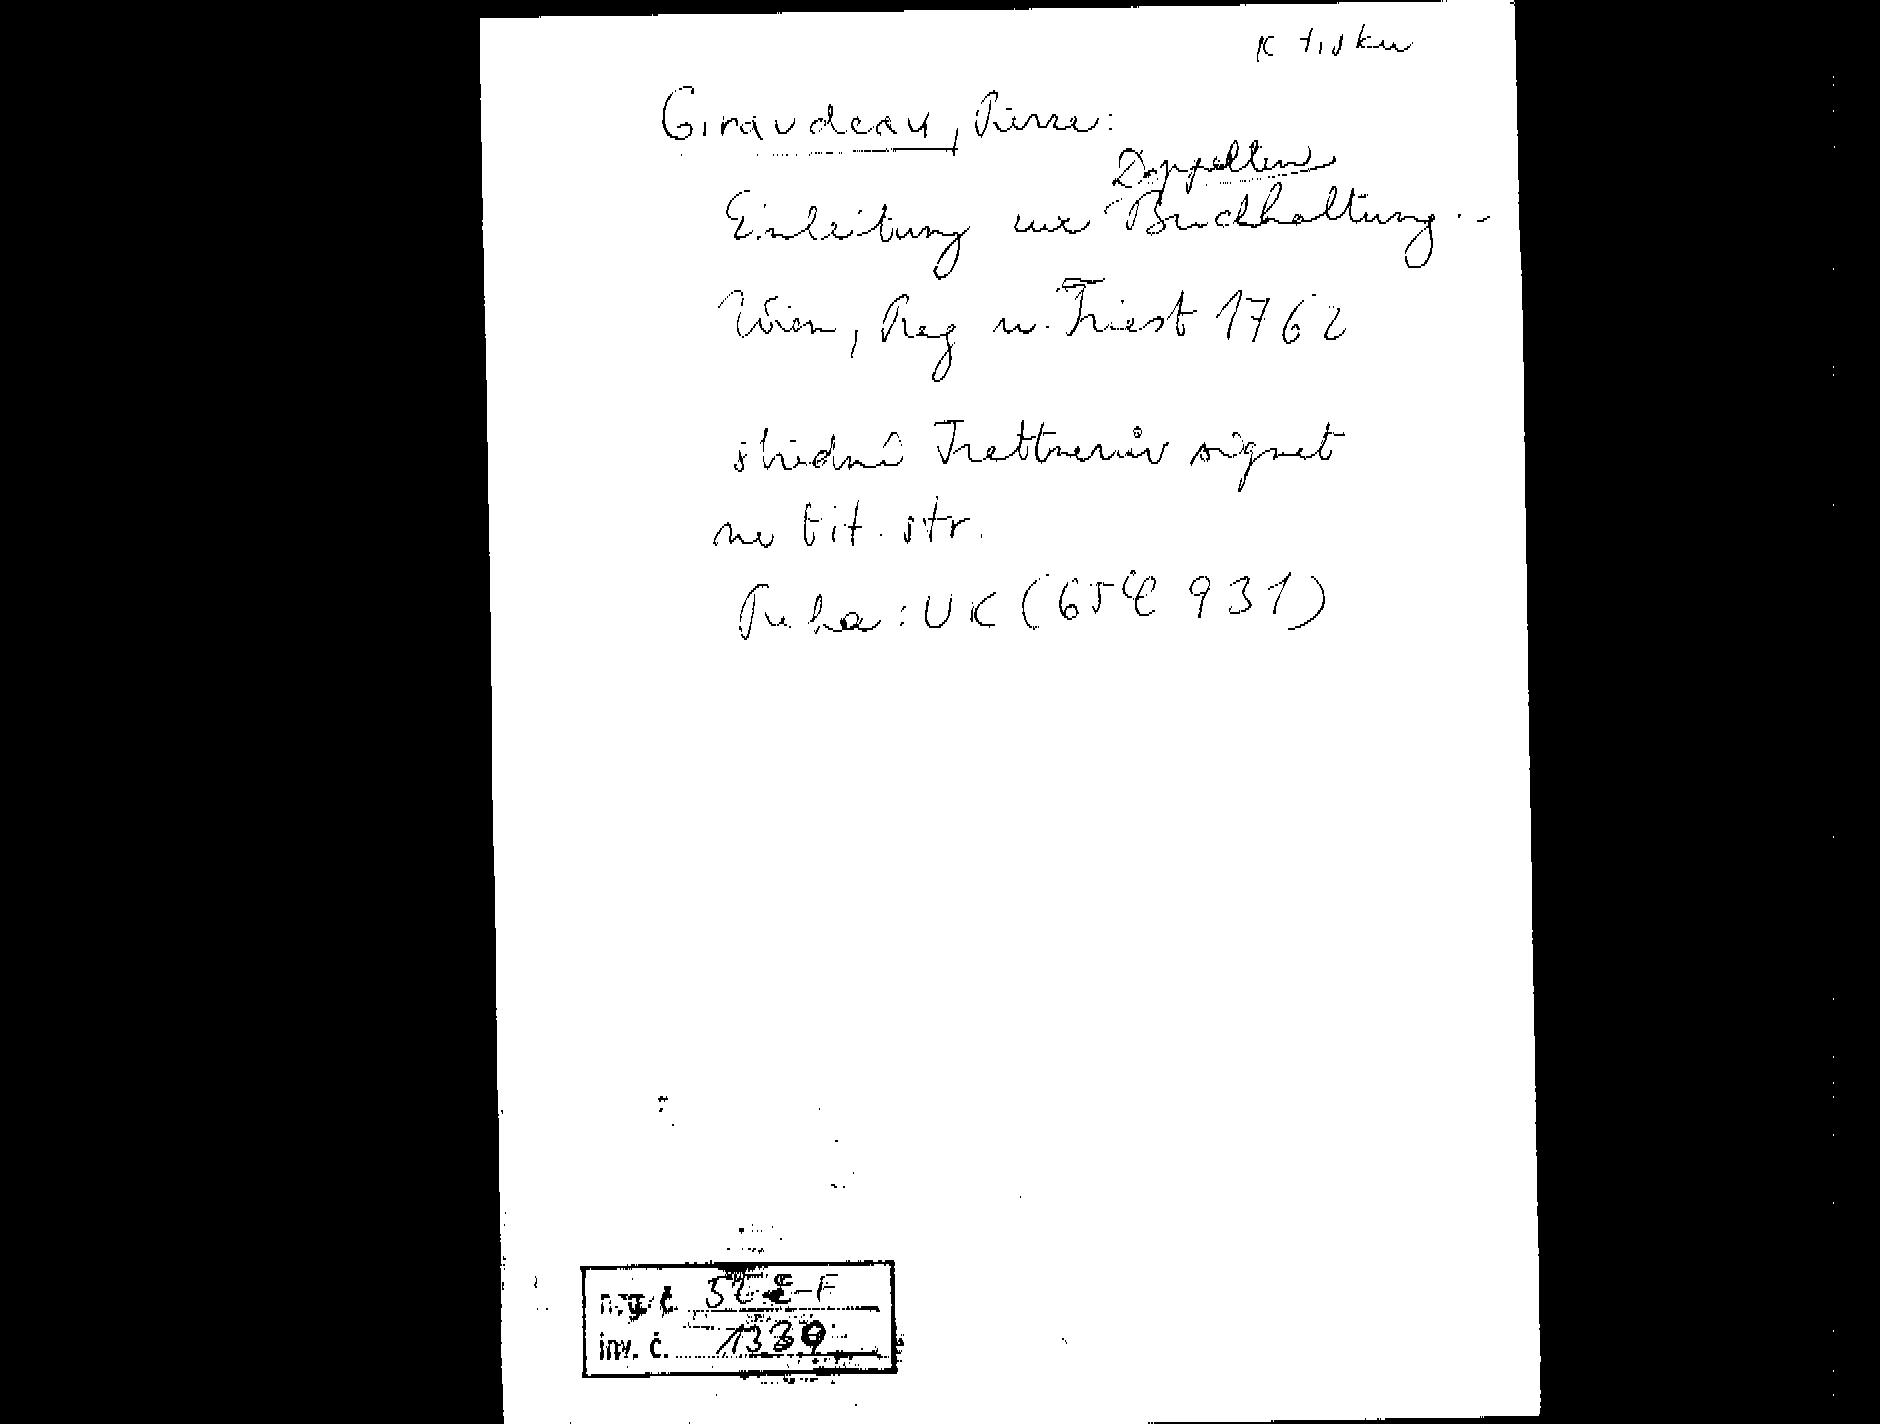 K tisku
Giraudeau, Pierre:
Doppelten
Einleitung zur Buchhaltung ..
Wien, Prag u. Triest 1762
střední Trattnerův signet
na tit. str.
Praha: UK (65 E 931)
inv. č. 1339